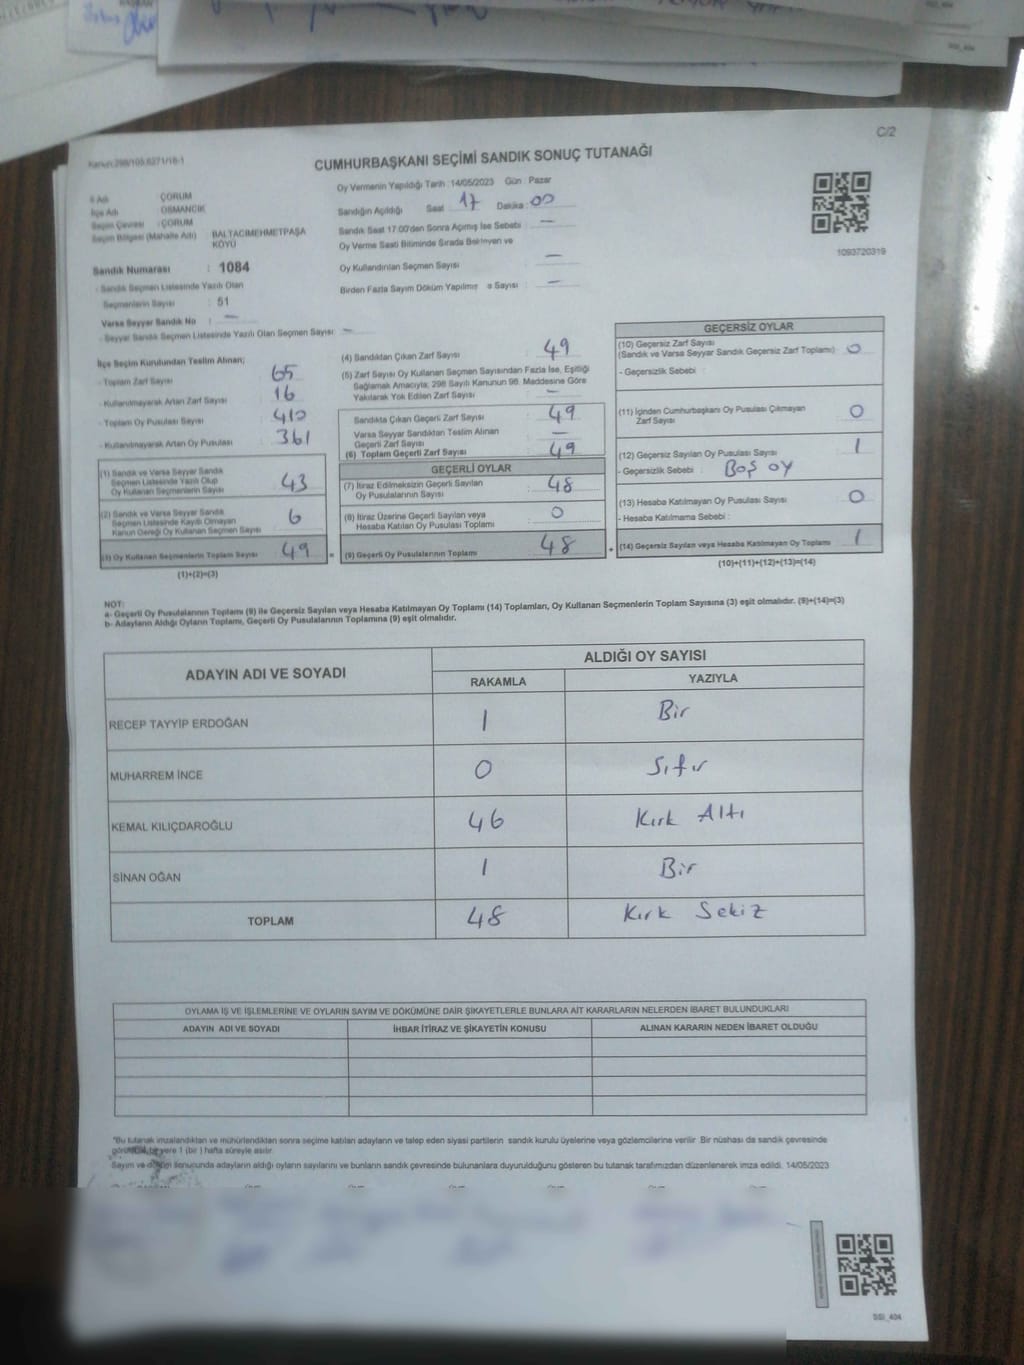 C/2
Kanun:298/105,6271/16-1
CUMHURBAŞKANI SEÇİMİ SANDIK SONUÇ TUTANAĞI
İl Adı ÇORUM
İlçe Adı OSMANCIK
Seçim Çevresi : ÇORUM
Seçim Bölgesi (Mahalle Adı) : BALTACIMEHMETPAŞA KÖYÜ
Oy Vermenin Yapıldığı Tarih : 14/05/2023 Gün : Pazar
Sandığın Açıldığı Saat 17 Dakika 00
Sandık Saat 17.00'den Sonra Açılmış İse Sebebi —
Oy Verme Saati Bitiminde Sırada Bekleyen ve
Oy Kullandırılan Seçmen Sayısı —
Birden Fazla Sayım Döküm Yapılmış Sayısı : —
1093720319
Sandık Numarası : 1084
- Sandık Seçmen Listesinde Yazılı Olan
Seçmenlerin Sayısı : 51
Varsa Seyyar Sandık No : —
- Seyyar Sandık Seçmen Listesinde Yazılı Olan Seçmen Sayısı: —
İlçe Seçim Kurulundan Teslim Alınan;
- Toplam Zarf Sayısı 65
- Kullanılmayarak Artan Zarf Sayısı 16
- Toplam Oy Pusulası Sayısı 410
- Kullanılmayarak Artan Oy Pusulası 361
(1) Sandık ve Varsa Seyyar Sandık
Seçmen Listesinde Yazılı Olup
Oy Kullanan Seçmenlerin Sayısı 43
(2) Sandık ve Varsa Seyyar Sandık
Seçmen Listesinde Kayıtlı Olmayan
Kanun Gereği Oy Kullanan Seçmen Sayısı 6
(3) Oy Kullanan Seçmenlerin Toplam Sayısı 49 =
(1)+(2)=(3)
(4) Sandıktan Çıkan Zarf Sayısı 49
(5) Zarf Sayısı Oy Kullanan Seçmen Sayısından Fazla İse, Eşitliği
Sağlamak Amacıyla; 298 Sayılı Kanunun 98. Maddesine Göre
Yakılarak Yok Edilen Zarf Sayısı —
Sandıkta Çıkan Geçerli Zarf Sayısı 49
Varsa Seyyar Sandıktan Teslim Alınan
Geçerli Zarf Sayısı —
(6) Toplam Geçerli Zarf Sayısı 49
GEÇERLİ OYLAR
(7) İtiraz Edilmeksizin Geçerli Sayılan
Oy Pusulalarının Sayısı 48
(8) İtiraz Üzerine Geçerli Sayılan veya
Hesaba Katılan Oy Pusulası Toplamı 0
(9) Geçerli Oy Pusulalarının Toplamı 48 +
GEÇERSİZ OYLAR
(10) Geçersiz Zarf Sayısı
(Sandık ve Varsa Seyyar Sandık Geçersiz Zarf Toplamı) 0
- Geçersizlik Sebebi :
(11) İçinden Cumhurbaşkanı Oy Pusulası Çıkmayan
Zarf Sayısı 0
(12) Geçersiz Sayılan Oy Pusulası Sayısı 1
- Geçersizlik Sebebi : BOŞ OY
(13) Hesaba Katılmayan Oy Pusulası Sayısı 0
- Hesaba Katılmama Sebebi :
(14) Geçersiz Sayılan veya Hesaba Katılmayan Oy Toplamı 1
(10)+(11)+(12)+(13)=(14)
NOT:
a- Geçerli Oy Pusulalarının Toplamı (9) ile Geçersiz Sayılan veya Hesaba Katılmayan Oy Toplamı (14) Toplamları, Oy Kullanan Seçmenlerin Toplam Sayısına (3) eşit olmalıdır. (9)+(14)=(3)
b- Adayların Aldığı Oyların Toplamı, Geçerli Oy Pusulalarının Toplamına (9) eşit olmalıdır.
ADAYIN ADI VE SOYADI ALDIĞI OY SAYISI
RAKAMLA YAZIYLA
RECEP TAYYİP ERDOĞAN 1 Bir
MUHARREM İNCE 0 Sıfır
KEMAL KILIÇDAROĞLU 46 Kırk Altı
SİNAN OĞAN 1 Bir
TOPLAM 48 Kırk Sekiz
OYLAMA İŞ VE İŞLEMLERİNE VE OYLARIN SAYIM VE DÖKÜMÜNE DAİR ŞİKAYETLERLE BUNLARA AİT KARARLARIN NELERDEN İBARET BULUNDUKLARI
ADAYIN ADI VE SOYADI İHBAR İTİRAZ VE ŞİKAYETİN KONUSU ALINAN KARARIN NEDEN İBARET OLDUĞU
*Bu tutanak imzalandıktan ve mühürlendikten sonra seçime katılan adayların ve talep eden siyasi partilerin sandık kurulu üyelerine veya gözlemcilerine verilir. Bir nüshası da sandık çevresinde
bir yere 1 (bir) hafta süreyle asılır.
Sayım ve döküm sonucunda adayların aldığı oyların sayılarını ve bunların sandık çevresinde bulunanlara duyurulduğunu gösteren bu tutanak tarafımızdan düzenlenerek imza edildi. 14/05/2023
SSI_404